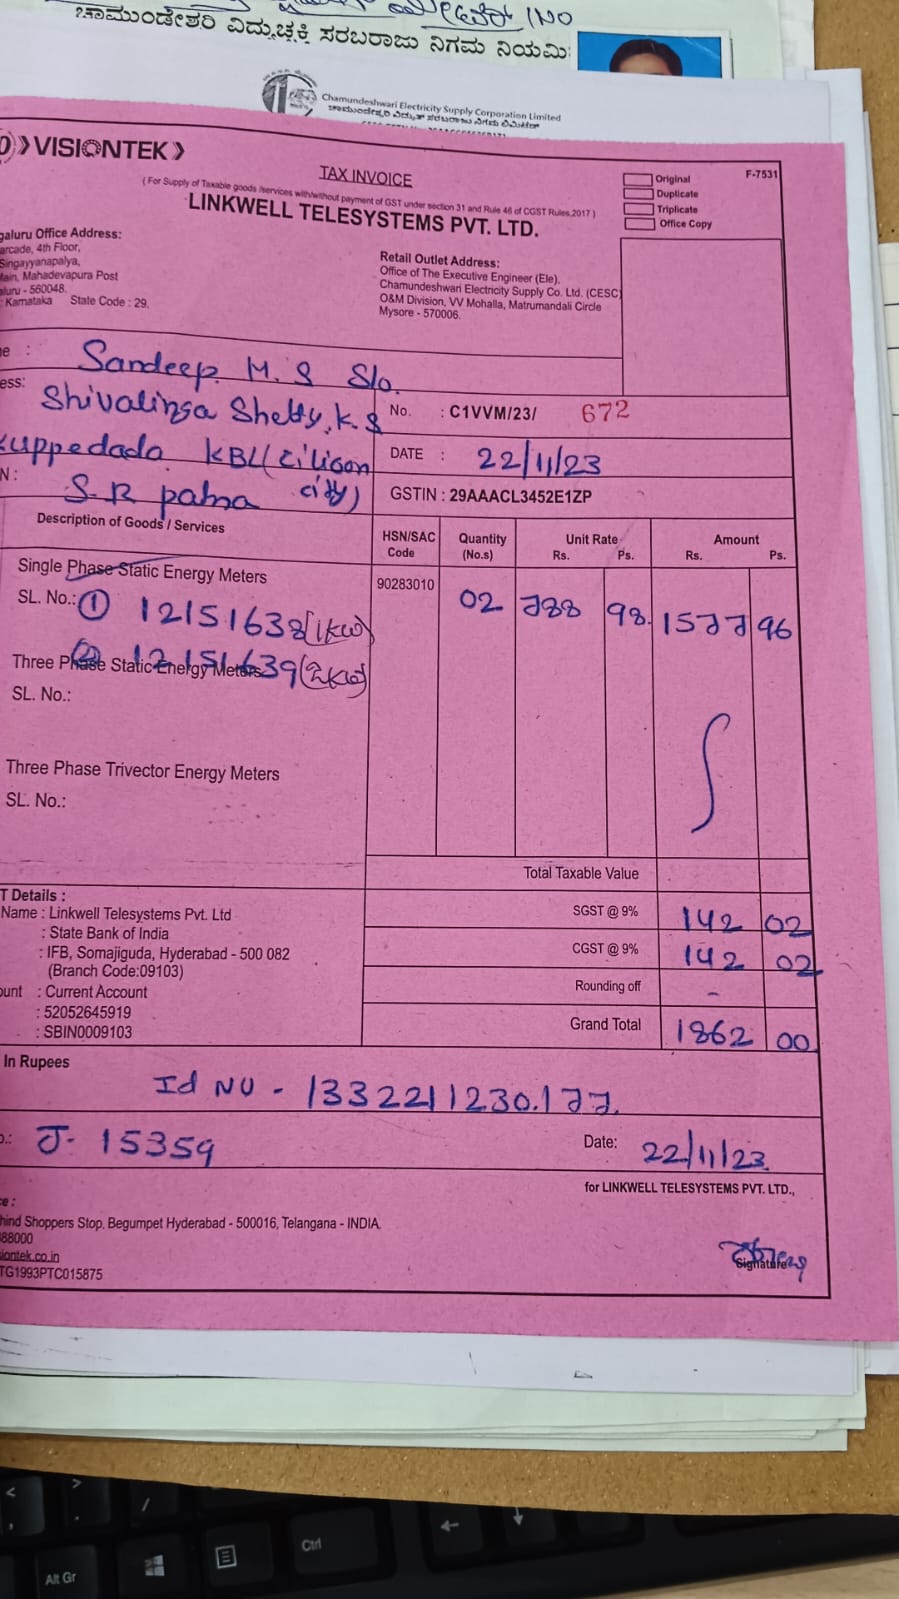 ಚಾಮುಂಡೇಶ್ವರಿ ವಿದ್ಯುಚ್ಛಕ್ತಿ ಸರಬರಾಜು ನಿಗಮ ನಿಯಮಿ
Chamundeshwari Electricity Supply Corporation Limited
VISIONTEK
TAX INVOICE
(For Supply of Taxable goods /services with/without payment of GST under section 31 and Rule 46 of CGST Rules,2017)
LINKWELL TELESYSTEMS PVT. LTD.
Original
Duplicate
Triplicate
Office Copy
F-7531
galuru Office Address:
arcade, 4th Floor,
Singayyanapalya,
Main, Mahadevapura Post
aluru - 560048.
Karnataka State Code : 29.
Retail Outlet Address:
Office of The Executive Engineer (Ele),
Chamundeshwari Electricity Supply Co. Ltd. (CESC)
O&M Division, VV Mohalla, Matrumandali Circle
Mysore - 570006.
e : Sandeep. M.S S/o.
ess: Shivalinga Shetty, K.S
No. : C1VVM/23/ 672
DATE : 22/11/23
N :
GSTIN : 29AAACL3452E1ZP
Description of Goods / Services
HSN/SAC Code
Quantity (No.s)
Unit Rate Rs. Ps.
Amount Rs. Ps.
Single Phase Static Energy Meters
90283010 02 788 98. 1577 96
SL. No.: ① 12151638 (1KW)
Three Phase Static Energy Meters
② 12151639 (2KW)
SL. No.:
Three Phase Trivector Energy Meters
SL. No.:
Total Taxable Value
SGST @ 9% 142 02
CGST @ 9% 142 02
Rounding off -
Grand Total 1862 00
T Details :
Name : Linkwell Telesystems Pvt. Ltd
: State Bank of India
: IFB, Somajiguda, Hyderabad - 500 082
(Branch Code:09103)
ount : Current Account
: 52052645919
: SBIN0009103
In Rupees
Id NO - 1332211230.177.
o.: J- 15359
Date: 22/11/23.
for LINKWELL TELESYSTEMS PVT. LTD.,
ce :
hind Shoppers Stop, Begumpet Hyderabad - 500016, Telangana - INDIA.
88000
siontek.co.in
TG1993PTC015875
Signature
Alt Gr
Ctrl